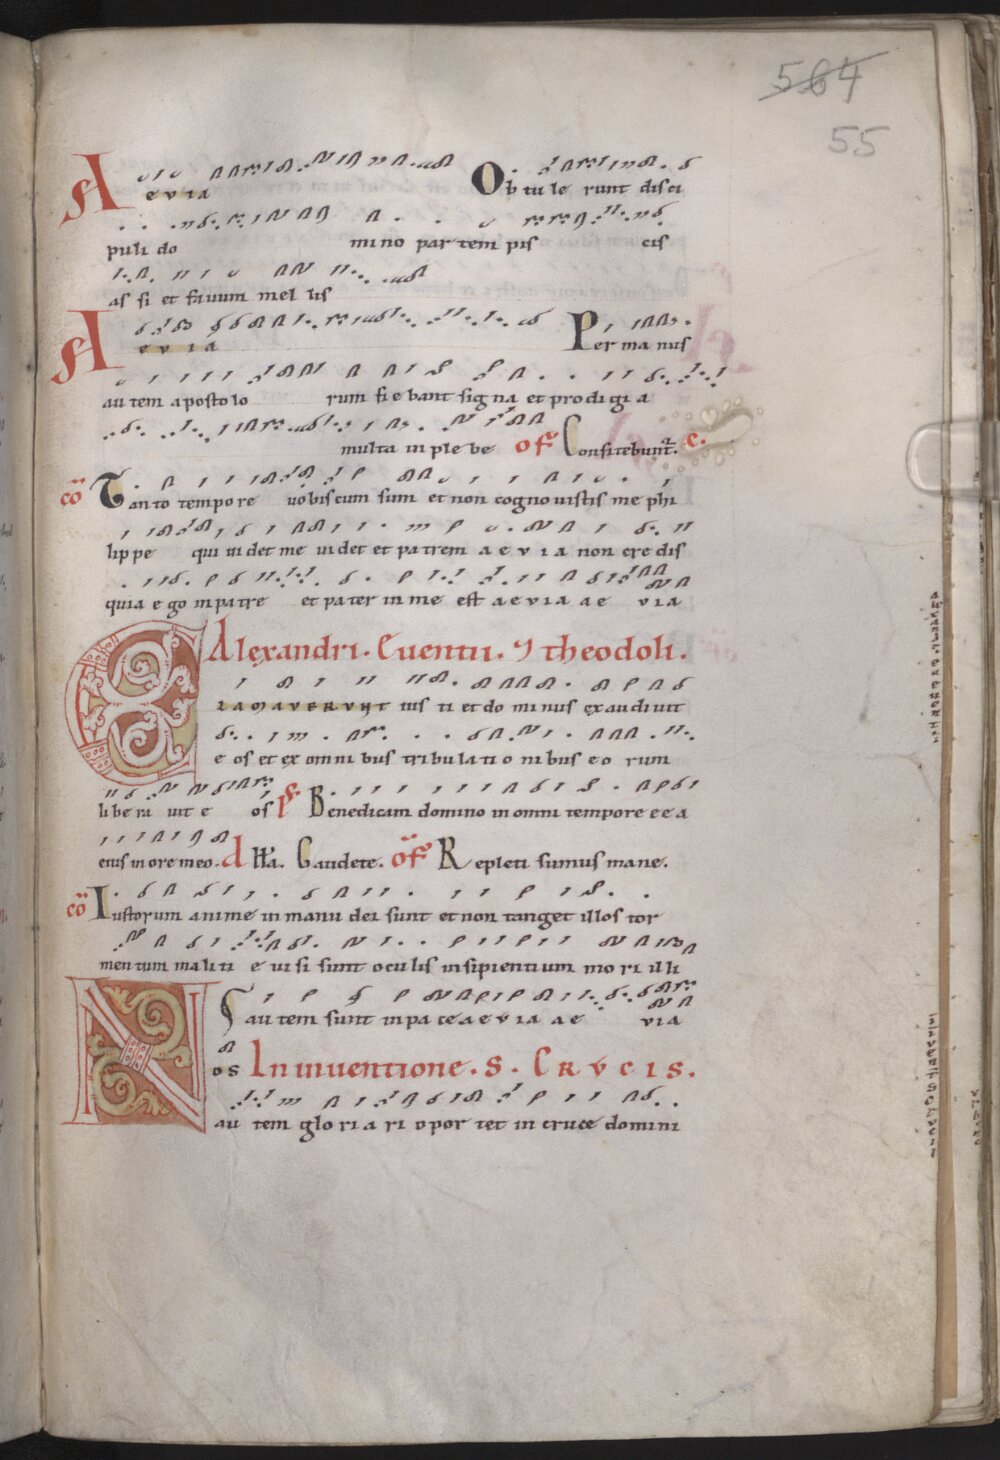 564
55
A evia Obtulerunt disci
puli domino partem piscis
assi et favum mellis
A evia Per manus
autem apostolorum fiebant signa et prodigia
multa in plebe of Confitebunt. c.
co Tanto tempore vobiscum sum et non cognovistis me phi
lippe qui videt me videt et patrem aevia non credis
quia ego in patre et pater in me est aevia ae via
Alexandri. Eventii. & theodoli.
CLAMAVERUNT iusti et dominus exaudivit
eos et ex omnibus tribulationibus eorum
liberavit eos ps Benedicam domino in omni tempore eea
eius in ore meo. all lla. Gaudete. of Repleti sumus mane.
co Iustorum anime in manu dei sunt et non tanget illos tor
mentum maliti e visi sunt oculis insipientium mori illi
autem sunt in pace aevia ae via
NOS In inventione. S. CRUCIS.
autem gloriari oportet in cruce domini